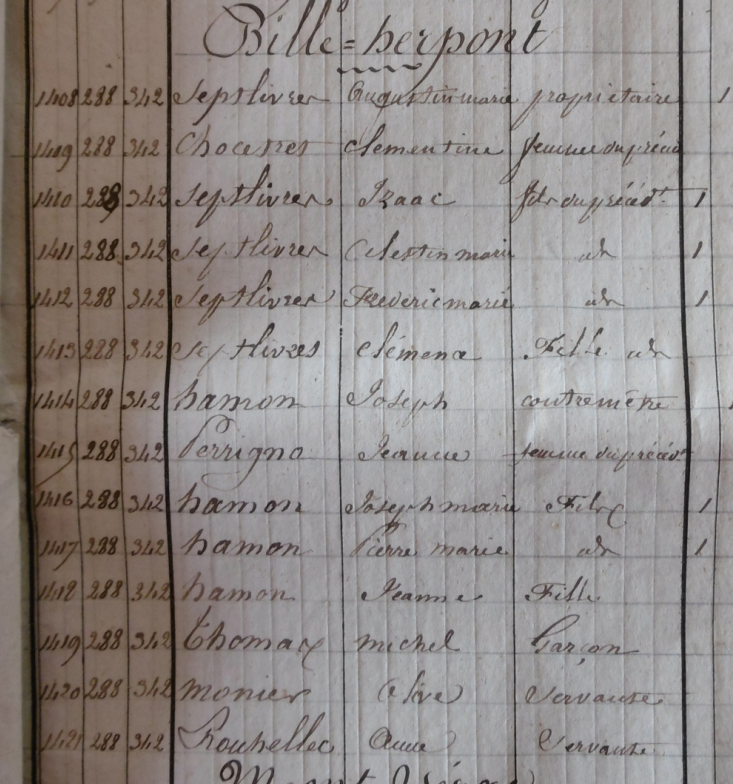 Bille=herpont
1408 288 342 Septlivres Augustin marie propriétaire 1
1409 288 342 Chocesres Clementine femme du précéd
1410 288 342 Septlivres Izaac fils du précédt 1
1411 288 342 Septlivres Celestin marie idn 1
1412 288 342 Septlivres Frederic marie idn 1
1413 288 342 Septlivres Clémence Fille idn
1414 288 342 hamon Joseph contremètre 1
1415 288 342 Perrigno Jeanne femme du précédt
1416 288 342 hamon Joseph marie Fils 1
1417 288 342 hamon Pierre marie idn 1
1418 288 342 hamon Jeanne Fille
1419 288 342 Thomas michel Garçon
1420 288 342 monier Olive Servante
1421 288 342 Rouhellec Anne Servante